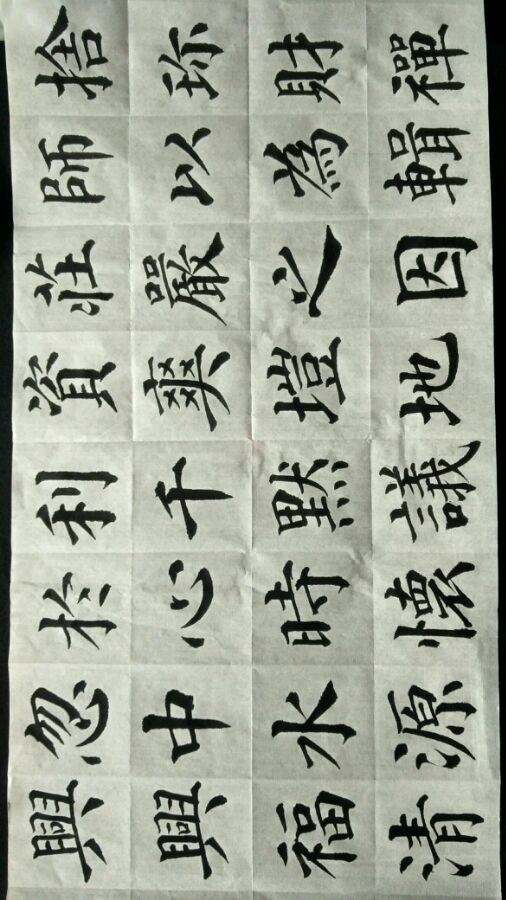 捨珍財禪
師以為輯
莊嚴之因
資爽塏地
利千默議
於心時懷
忽中水源
興興福清